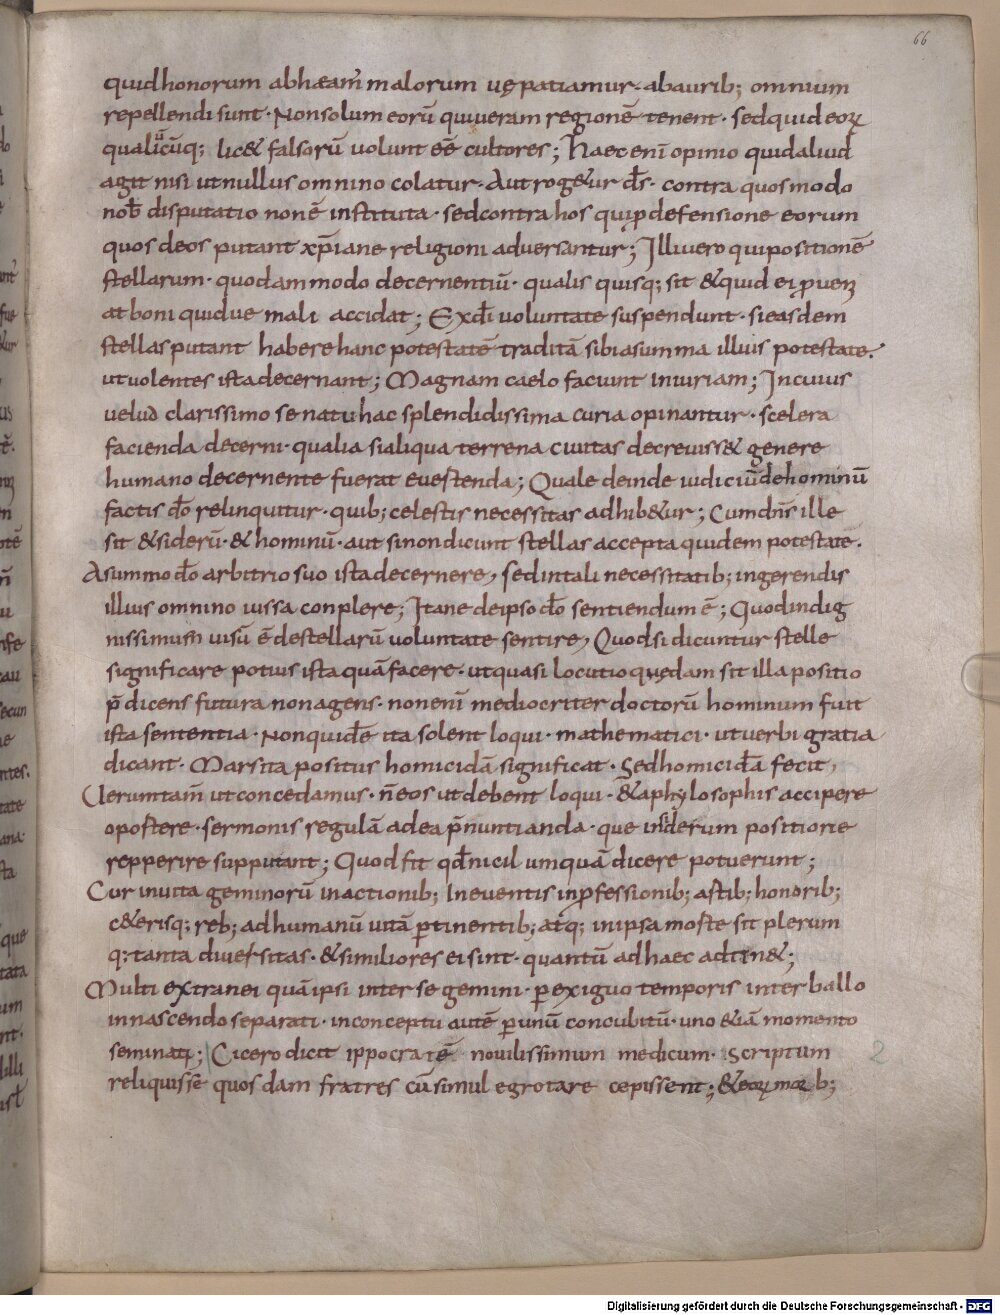 66
quidhonorum abhæam̄ malorum uę patiamur· abaurib; omnium
repellendi sunt· Nonsolum eorū quiueram regionē tenent· sedquideoꝝ
qualiūcūq; lic& falsorū uolunt eē cultores; haec enī opinio quidaliud
agit nisi utnullus omnino colatur· Autrog&ur d̄s· contra quosmodo
nob̄ disputatio nonē instituta· sedcontra hos quiꝓdefensione eorum
quos deos putant xp̄iane religioni aduersantur; Illiuero quipositionē
stellarum· quodammodo decernentiū· qualis quisq; sit &quid ei ꝓueniꝫ
at boni quidue mali accidat; Exdī uoluntate suspendunt· sieasdem
stellasputant habere hanc potestatē traditā sibiasumma illius potestate·
utuolentes istadecernant; Magnam caelo faciunt iniuriam; Incuius
uelud clarissimo senatu hac splendidissima curia opinantur· scelera
facienda decerni· qualia sialiqua terrena ciuitas decreuiss& genere
humano decernente fuerat euertenda; Quale deinde iudiciū dehominū
factis dō relinquitur· quib; celestis necessitas adhib&ur; Cumdn̄s ille
sit &siderū· & hominū· aut sinondicunt stellas accepta quidem potestate·
Asummodō arbitrio suo istadecernere, sedintali necessitatib; ingerendis
illius omnino iussa conplere; Itane deipso dō sentiendum ē; Quodindig
nissimum uisū ē destellarū uoluntate sentire, Quodsi dicuntur stelle
significare potius ista quā facere· utquasi locutio quędam sit illa positio
p̄dicens futura nonagens· nonenī mediocriter doctorū hominum fuit
ista sententia· Nonquidē ita solent loqui· mathematici· utuerbi gratia
dicant· Marsita positus homicidā significat· Sedhomicidā fecit,
Ueruntam̄ utconcedamus· n̄eos utdebent loqui· &aphylosophis accipere
oportere· sermonis regulā adea p̄nuntianda· que insiderum positione
repperire supputant; Quod fit qd̄nicil umquā dicere potuerunt;
Cur inuita geminorū inactionib; Ineuentis inꝓfessionib; artib; honorib;
c&erisq; reb; adhumanū uitā ꝑtinentib; atq; inipsa morte sit plerum
q; tanta diuersitas· &similiores ei sint· quantū adhaec adtin&;
Multi extranei quā ipsi inter se gemini· ꝑexiguo temporis interuallo
innascendo separati· inconceptu autē ꝑunū concubitū· uno &iā momento
seminati; Cicero dicit ippocratē nouilissimum medicum· scriptum
reliquisse quosdam fratres cūsimul egrotare cepissent; &eoꝝ morb;
2